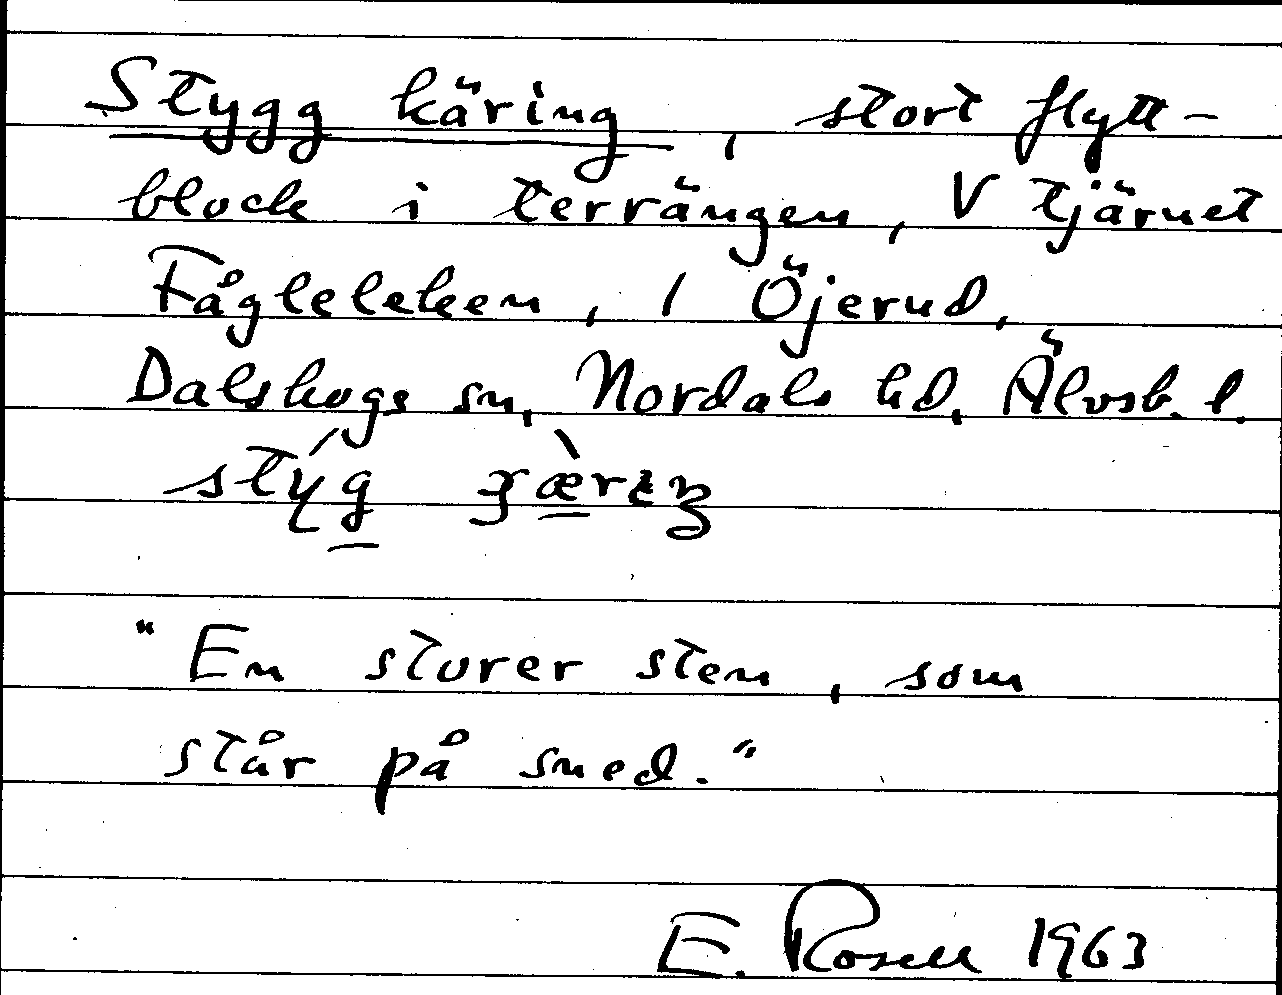 Stygg käring, stort flytt-
block i terrängen, V tjärnet
Fågleleken, / Öjerud,
Dalskogs sn, Nordals hd, Älvsb. l.
"En storer sten, som
står på sned."
E. Rosell 1963